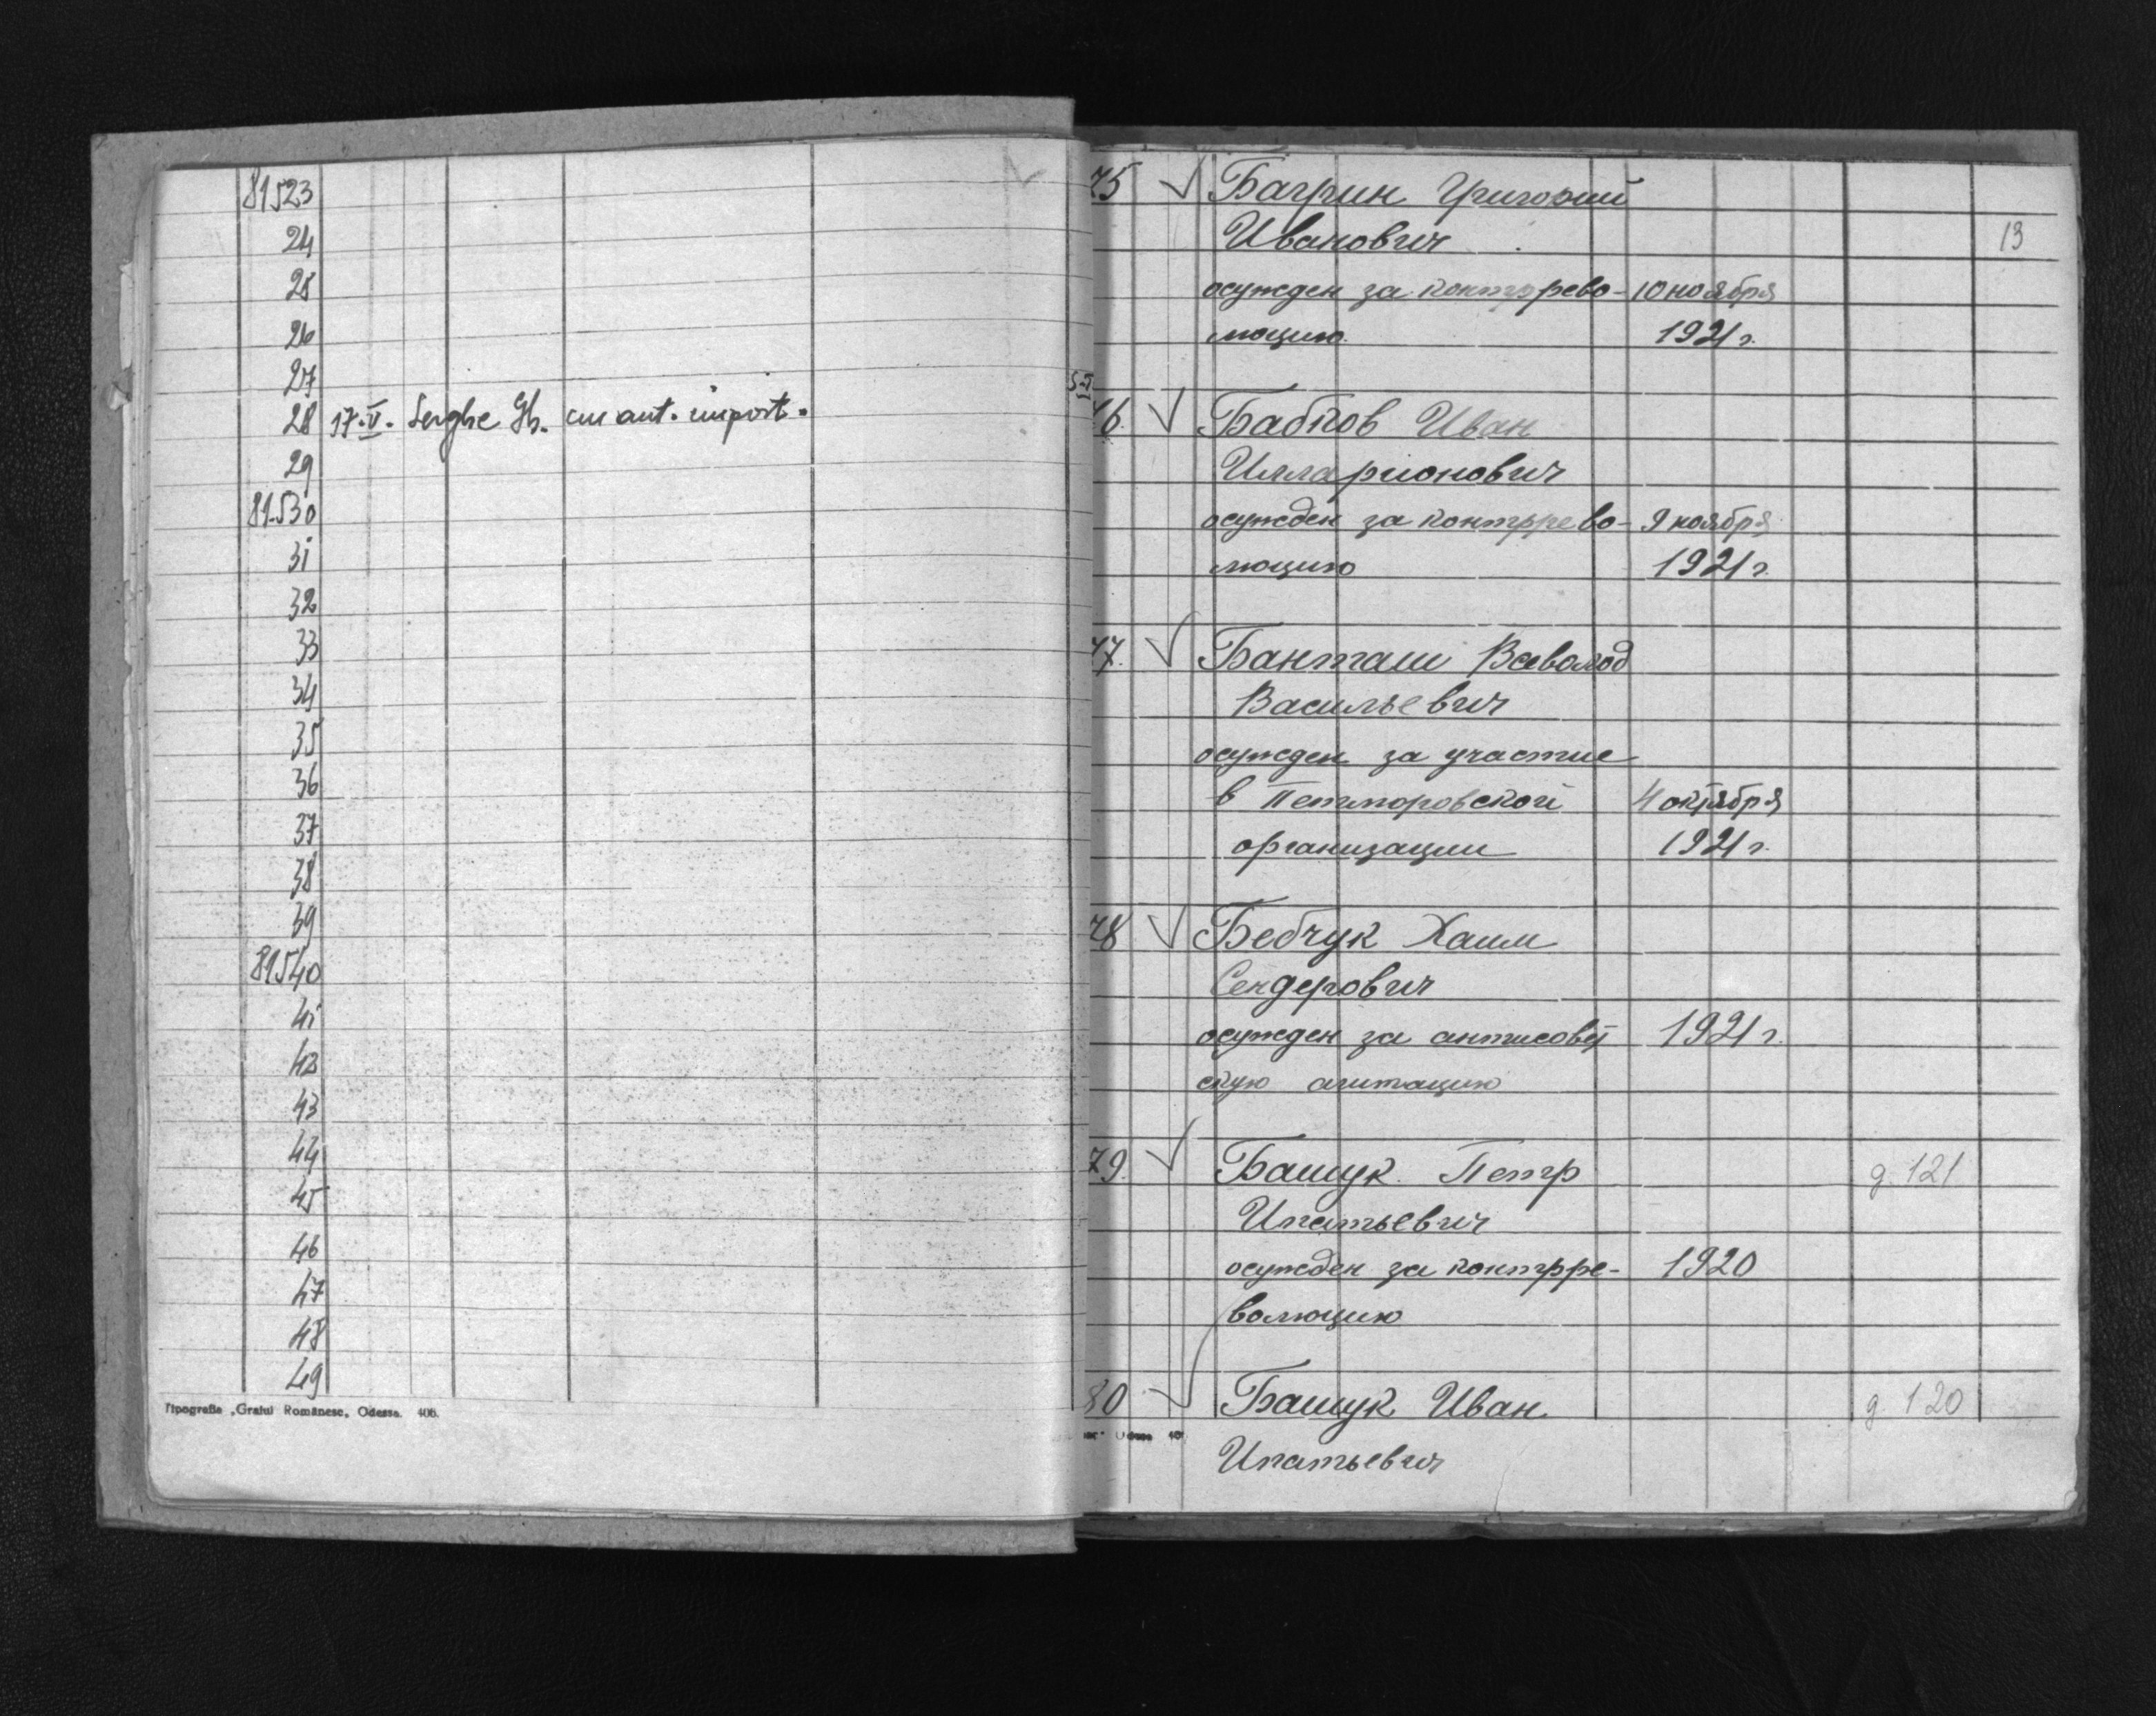 81523
24
25
26
27
28 17·V· Serghe Gh. cu aut. import.
29
81530
31
32
33
34
35
36
37
38
39
81540
41
42
43
44
45
46
47
48
49
Tipografia „Graiul Românesc„ Odessa. 406.
13
75 Багрин Григорий
Иванович
осужден за контрево- 10 ноября
люцию. 1921 г.
76. Бабков Иван
Илларионович
осужден за контррево- 9 ноября
люцию 1921 г.
77. Банташ Всеволод
Васильевич
осужден за участие
в Петлюровской 4 октября
организации 1921 г.
78 Бебчук Хаим
Сендерович
осужден за антисовет 1921 г.
скую агитацию
79. Башук Петр д. 121
Ипатьевич
осужден за контрре- 1920
волюцию
80 Башук Иван д. 120
Ипатьевич